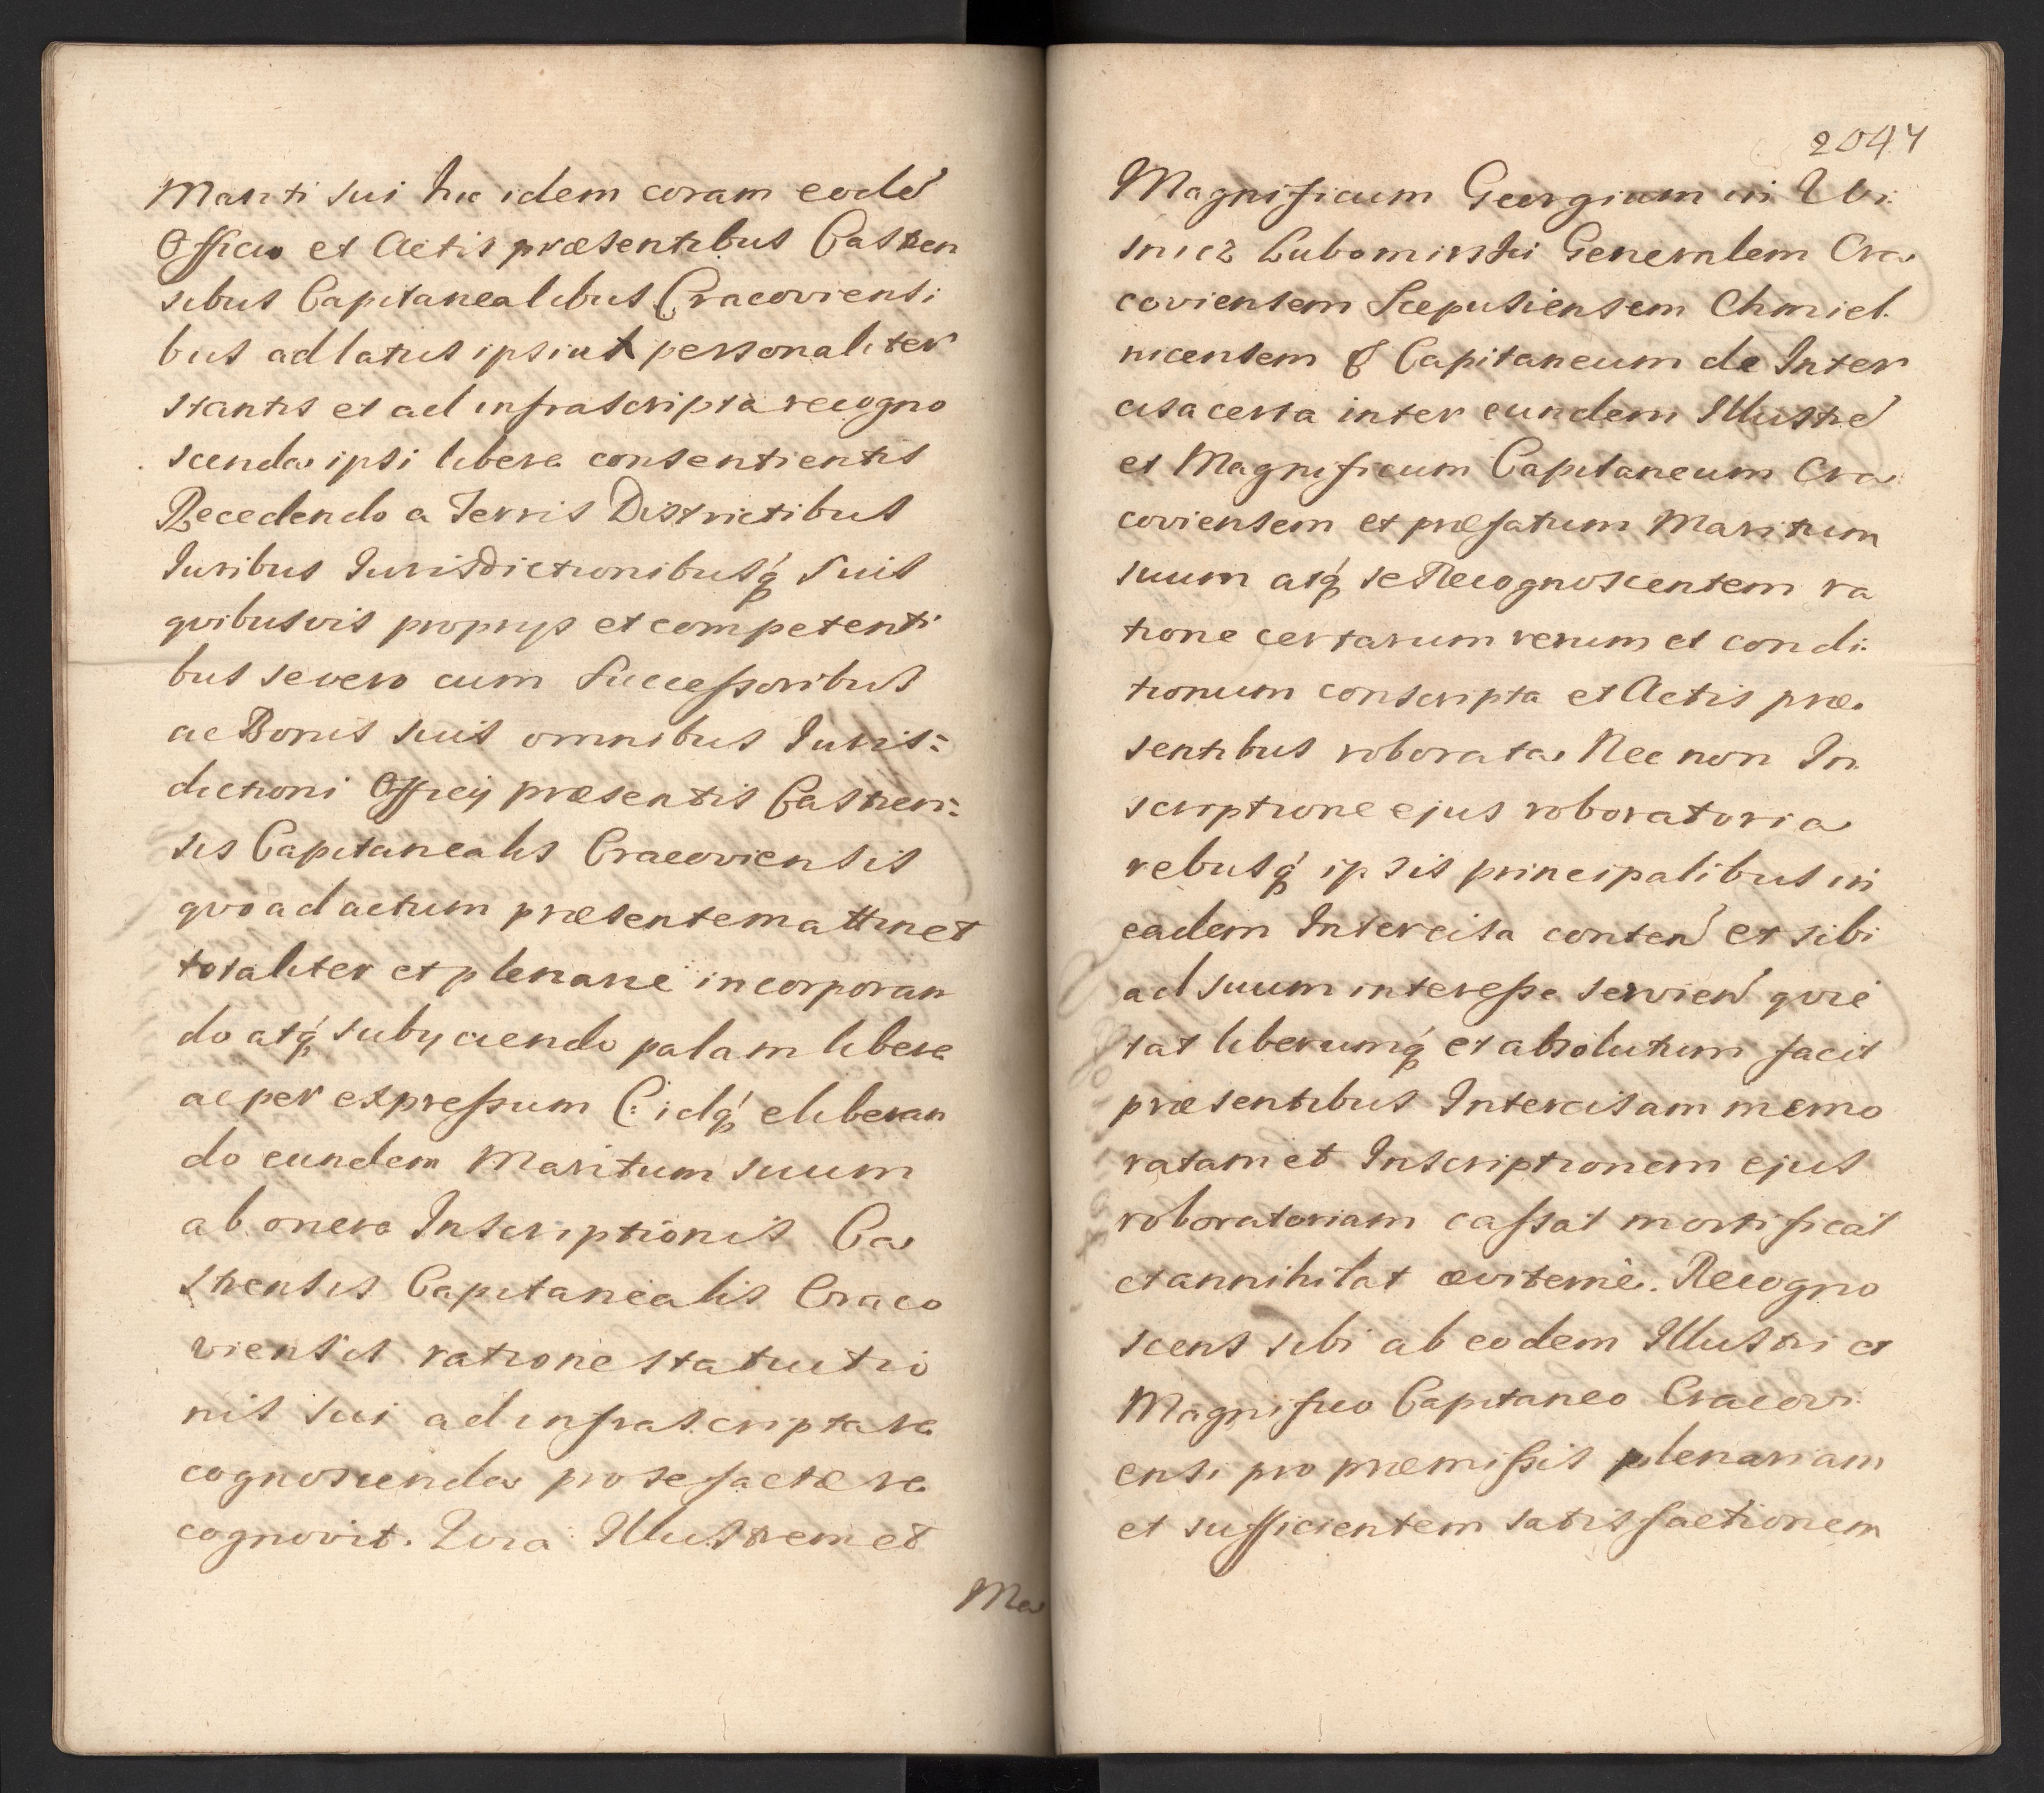 Mariti sui hic idem coram eodē
Officio et Actis præsentibus Castren
sibus Capitanealibus Cracoviensi
bus ad latus ipsius personaliter
stantis et ad infrascripta recogno
scenda ipsi libere consentientis
Recedendo a Terris Districtibus
Iuribus Iurisdictionibusq́ Suis
qvibusvis proprijs et competenti
bus se vero cum Successoribus
ac Bonis suis omnibus Iuris:
dictioni Officij præsentis Castren:
sis Capitanealis Cracoviensis
qvo ad actum præsentem attinet
totaliter et plenarie incorporan
do atq́ subijciendo palam libere
ac per expressum C: idq́ eliberan
do eundem Maritum suum
ab onere Inscriptionis Ca
strensis Capitanealis Craco
viensis ratione statutio
nis sui ad infrascripta re
cognoscenda pro se factæ re
cognovit. Qvia Illustrem et
Ma
2047
Magnificum Georgium in Wi:
snicz Lubomirski Generalem Cra
coviensem Scepusiensem Chmiel
nicensem & Capitaneum de Inter
cisa certa inter eundem Illustrē
et Magnificum Capitaneum Cra
coviensem et præfatum Maritum
suum atq́ se Recognoscentem ra
tione certarum rerum et condi:
tionum conscripta et Actis præ
sentibus roborata Nec non In
scriptione ejus roboratoria
rebusq́ ipsis principalibus in
eadem Intercisa conten̄ et sibi
ad suum interesse servien̄ qvie
tat liberumq́ et absolutum facit
præsentibus Intercisam memo
ratam et Inscriptionem ejus
roboratoriam cassat mortificat
et annihilat æviterne. Recogno
scens sibi ab eodem Illustri et
Magnifico Capitaneo Cracovi
ensi pro præmissis plenariam
et sufficientem satisfactionem